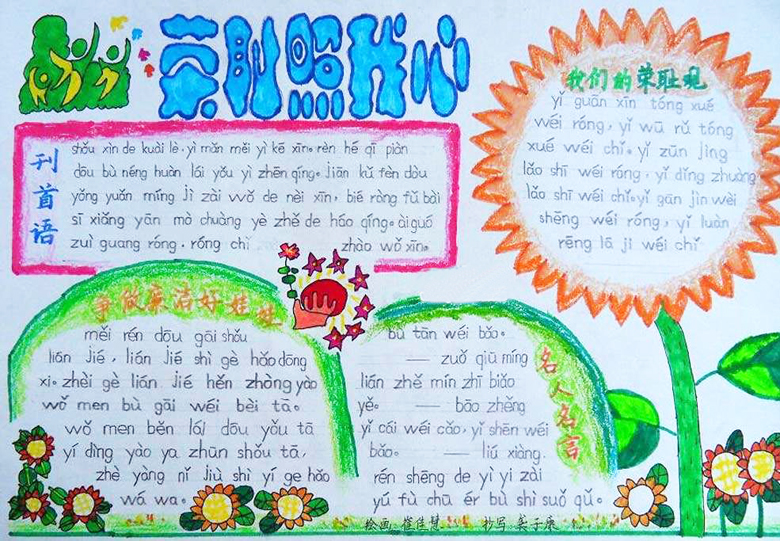 荣耻照我心
刊首语
shǒu xìn de kuài lè, yì mǎn měi yì kē xīn. rèn hé qī piàn
dōu bù néng huàn lái yǒu yì zhēn qíng. jiān kǔ fèn dòu
yǒng yuǎn míng jì zài wǒ de nèi xīn, bié ràng fǔ bài
sī xiǎng yān mò chuàng yè zhě de háo qíng. ài guó
zuì guang róng, róng chǐ zhào wǒ xīn.
我们的荣耻观
yǐ guān xīn tóng xué
wéi róng, yǐ wū rǔ tóng
xué wéi chǐ. yǐ zūn jìng
lǎo shī wéi róng, yǐ dǐng zhuàng
lǎo shī wéi chǐ. yǐ gān jìn wèi
shēng wéi róng, yǐ luàn
rēng lā ji wéi chǐ
争做廉洁好娃娃
měi rén dōu gāi shǒu
lián jié, lián jié shì gè hǎo dōng
xi. zhèi gè lián jié hěn zhòng yào
wǒ men bù gāi wéi bèi tā.
wǒ men běn lái dōu yǒu tā
yí dìng yào ya zhūn shǒu tā,
zhè yàng nǐ jiù shì yí ge hǎo
wá wa.
名人名言
bù tān wéi bǎo.
—— zuǒ qiū míng
lián zhě mín zhī biǎo
yě. —— bāo zhěng
yǐ cái wéi cǎo, yǐ shēn wéi
bǎo. —— liú xiàng.
rén shēng de yì yi zài
yú fù chū ér bù shì suǒ qǔ.
绘画: 佳慧 抄写: 子康